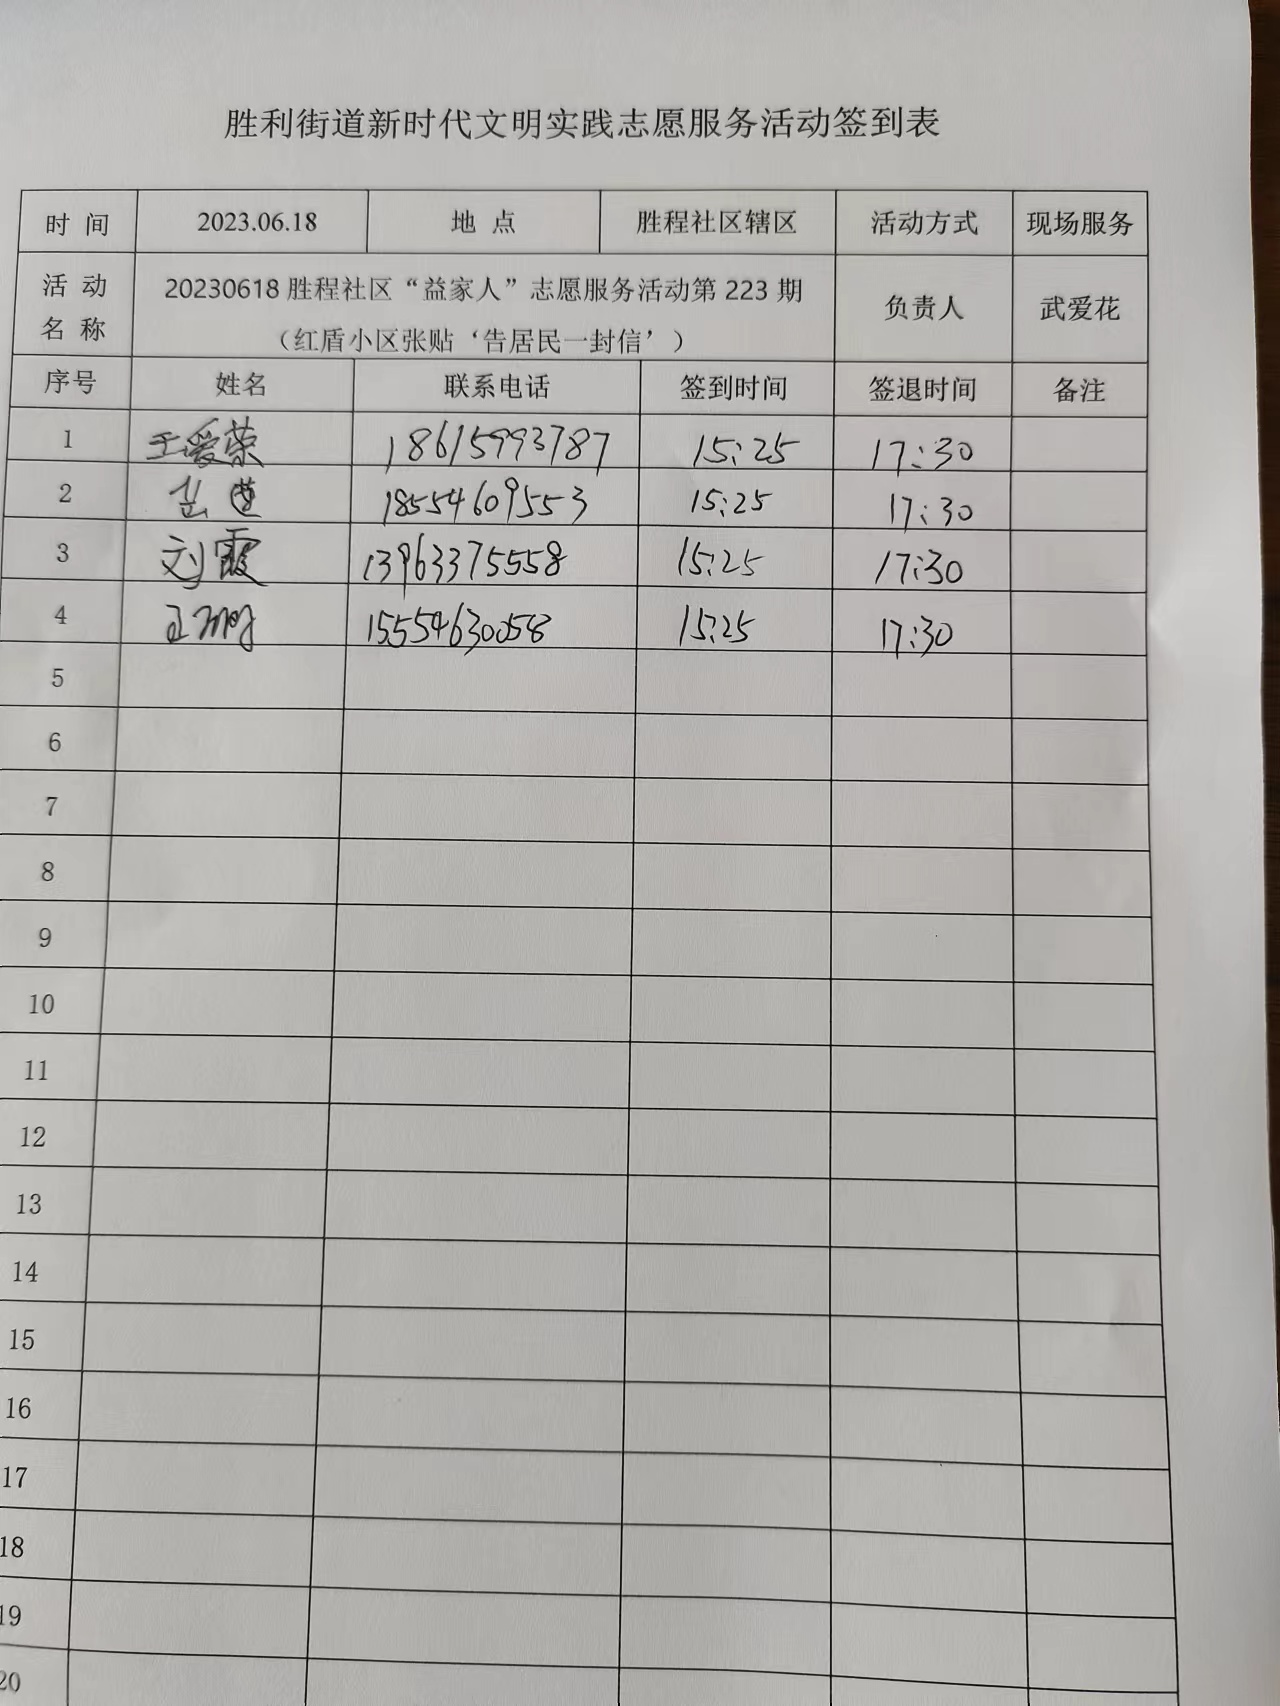 胜利街道新时代文明实践志愿服务活动签到表
时 间 2023.06.18 地 点 胜程社区辖区 活动方式 现场服务
活 动 名 称 20230618 胜程社区“益家人”志愿服务活动第 223 期 （红盾小区张贴‘告居民一封信’） 负责人 武爱花
序号 姓名 联系电话 签到时间 签退时间 备注
1 王爱荣 18615993787 15:25 17:30
2 岳莲 18554609553 15:25 17:30
3 刘霞 13963375558 15:25 17:30
4 15554630058 15:25 17:30
5
6
7
8
9
10
11
12
13
14
15
16
17
18
19
20